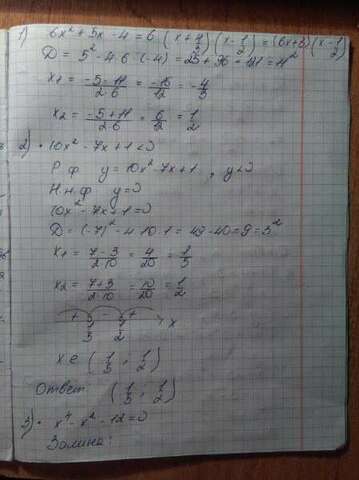 1) 6x² + 5x - 4 = 6 · (x + 4/3)(x - 1/2) = (6x + 8)(x - 1/2)
D = 5² - 4 · 6 · (-4) = 25 + 96 = 121 = 11²
x₁ = (-5 - 11)/(2·6) = -16/12 = -4/3
x₂ = (-5 + 11)/(2·6) = 6/12 = 1/2
2) • 10x² - 7x + 1 < 0
Р.ф. y = 10x² - 7x + 1, y < 0
Н.н.ф. y = 0
10x² - 7x + 1 = 0
D = (-7)² - 4 · 10 · 1 = 49 - 40 = 9 = 3²
x₁ = (7 - 3)/(2·10) = 4/20 = 1/5
x₂ = (7 + 3)/(2·10) = 10/20 = 1/2
+ - +
1/5 1/2 x
x ∈ (1/5 ; 1/2)
Ответ: (1/5 ; 1/2)
3) • x⁴ - x² - 12 = 0
Заміна: